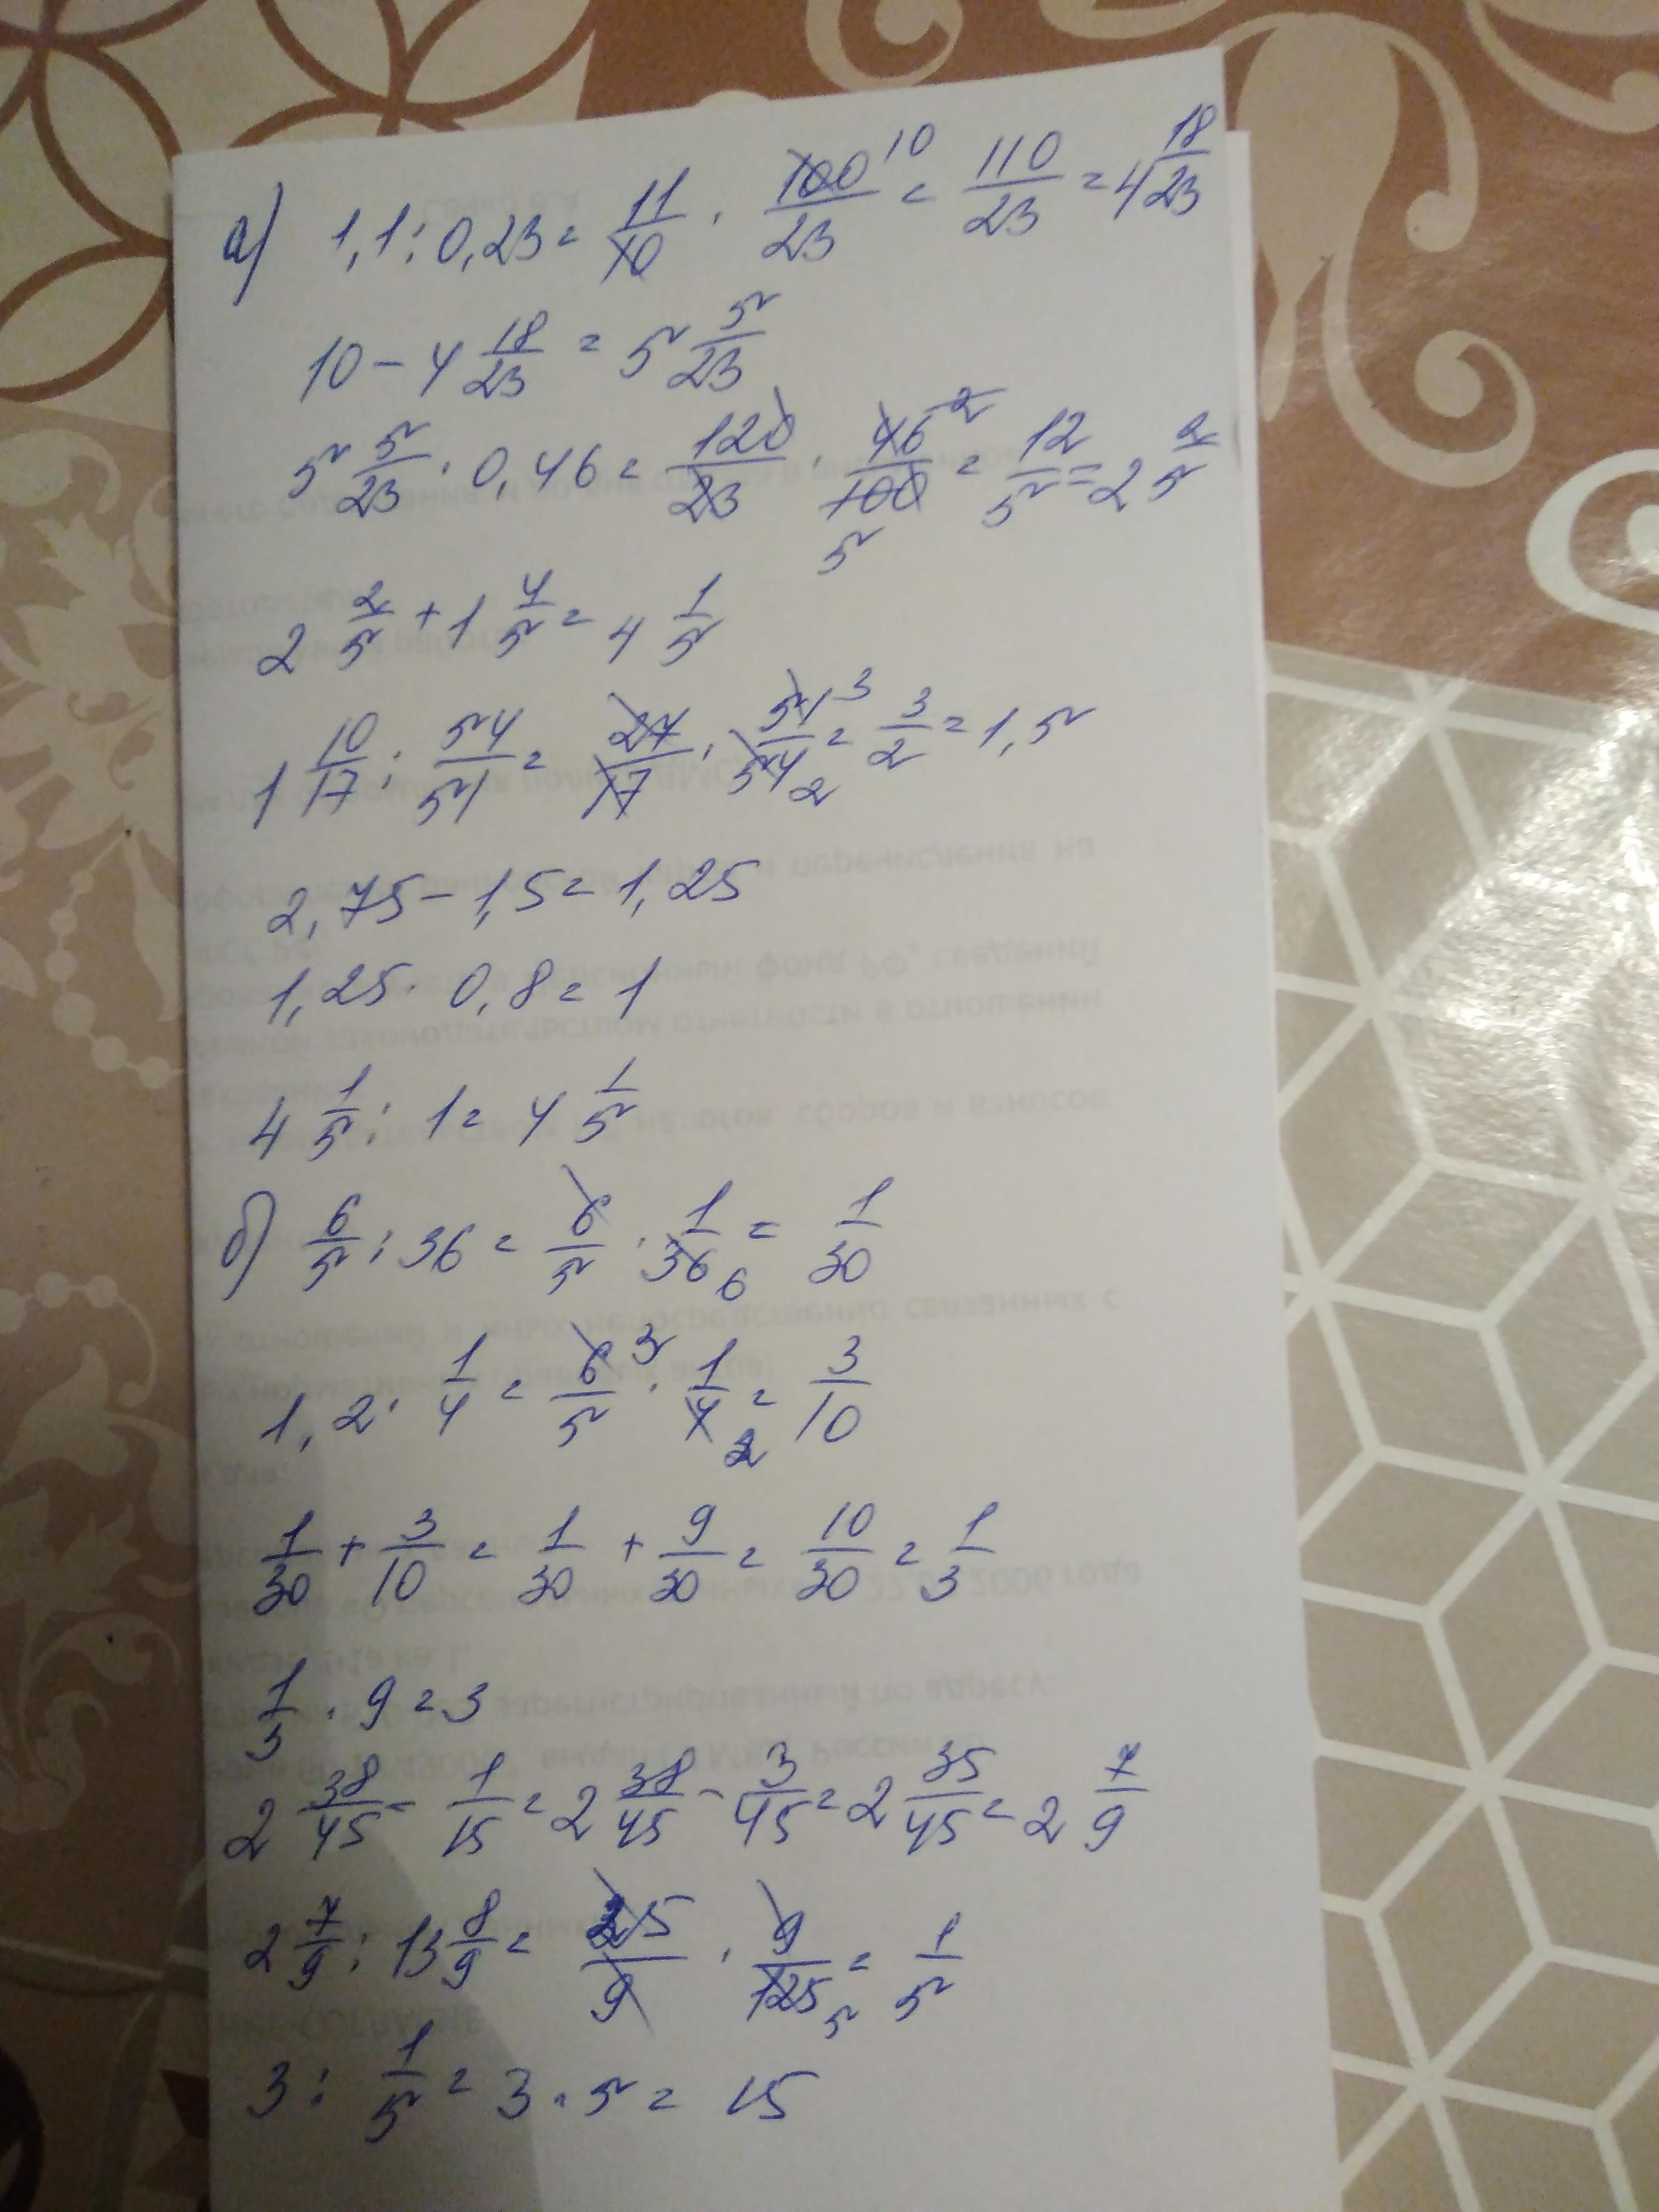 а) 1,1 : 0,23 = 11/10 · 100/23 10 = 110/23 = 4 18/23
10 - 4 18/23 = 5 5/23
5 5/23 · 0,46 = 120/23 · 46/100 2 5 = 12/5 = 2 2/5
2 2/5 + 1 4/5 = 4 1/5
1 10/17 : 54/51 = 27/17 · 51/54 3 2 = 3/2 = 1,5
2,75 - 1,5 = 1,25
1,25 · 0,8 = 1
4 1/5 : 1 = 4 1/5
б) 6/5 : 36 = 6/5 · 1/36 6 = 1/30
1,2 · 1/4 = 6/5 3 · 1/4 2 = 3/10
1/30 + 3/10 = 1/30 + 9/30 = 10/30 = 1/3
1/3 · 9 = 3
2 38/45 - 1/15 = 2 38/45 - 3/45 = 2 35/45 = 2 7/9
2 7/9 : 13 8/9 = 25/9 · 9/125 5 = 1/5
3 : 1/5 = 3 · 5 = 15